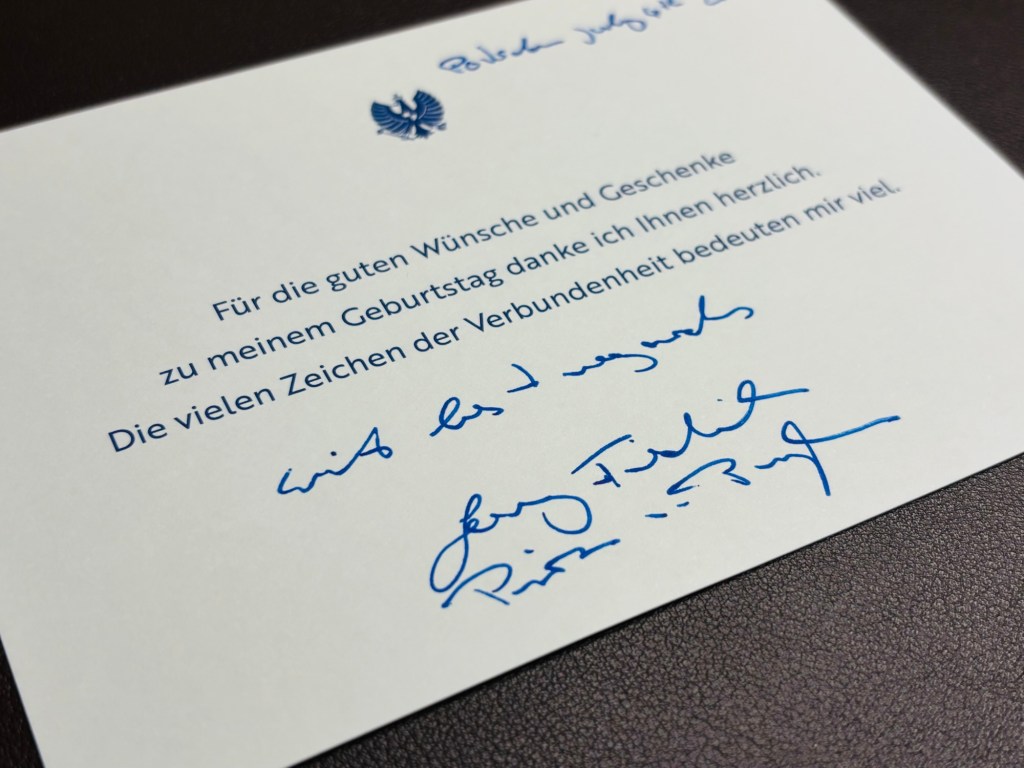 Potsdam July 4th
Für die guten Wünsche und Geschenke
zu meinem Geburtstag danke ich Ihnen herzlich.
Die vielen Zeichen der Verbundenheit bedeuten mir viel.
with best regards
Georg Friedrich
Prinz v. Preußen